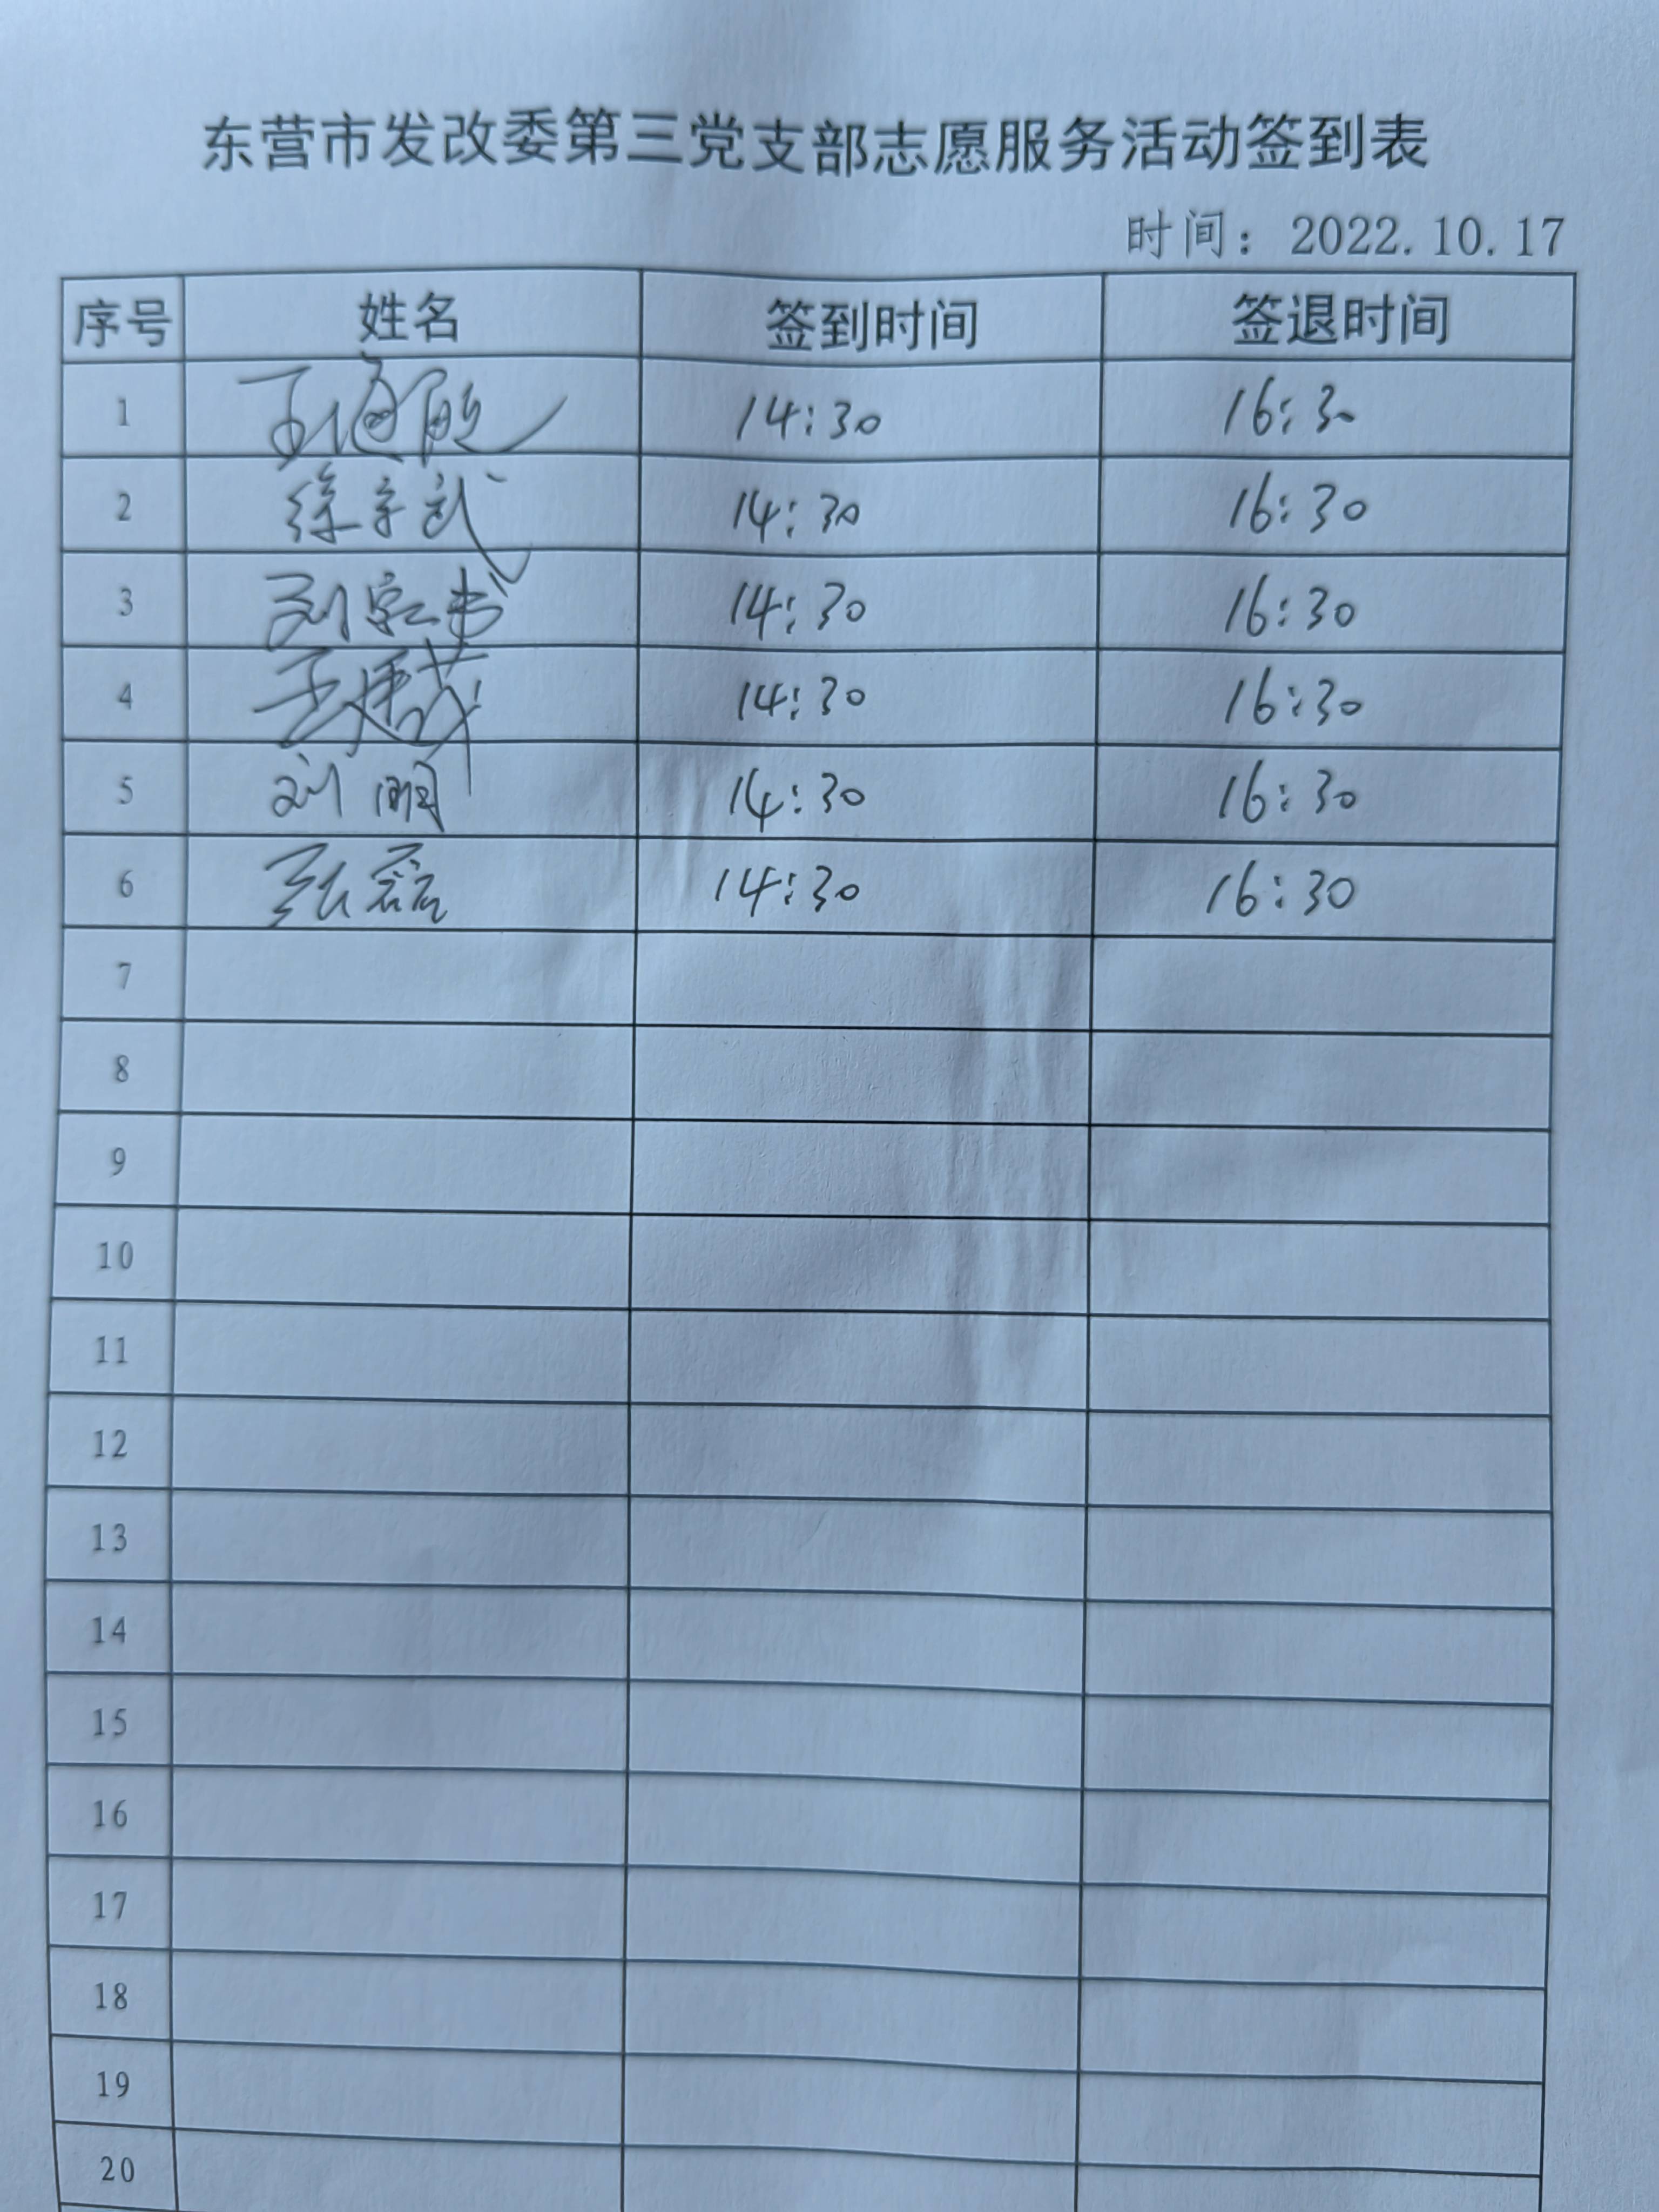 东营市发改委第三党支部志愿服务活动签到表
时间：2022.10.17
序号 姓名 签到时间 签退时间
1 14:30 16:30
2 徐 武 14:30 16:30
3 刘 14:30 16:30
4 王 14:30 16:30
5 刘 明 14:30 16:30
6 张磊 14:30 16:30
7
8
9
10
11
12
13
14
15
16
17
18
19
20